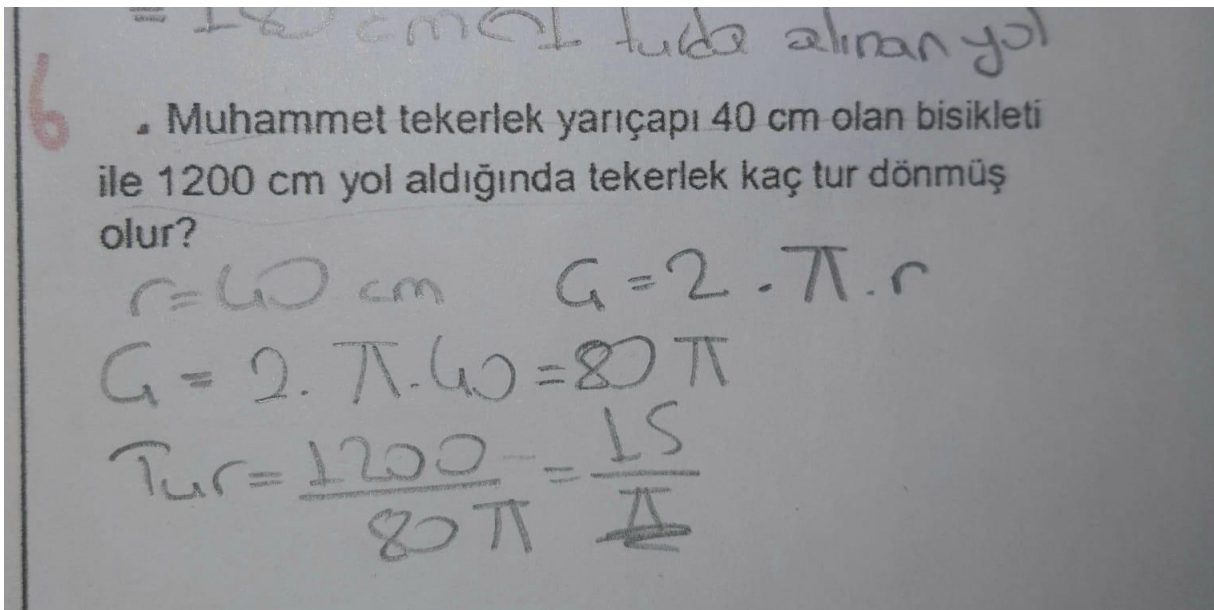 = 180 cm 1 turda alınan yol
6
. Muhammet tekerlek yarıçapı 40 cm olan bisikleti
ile 1200 cm yol aldığında tekerlek kaç tur dönmüş
olur?
r=40 cm Ç=2.π.r
Ç=2.π.40=80π
Tur=1200/80π=15/π